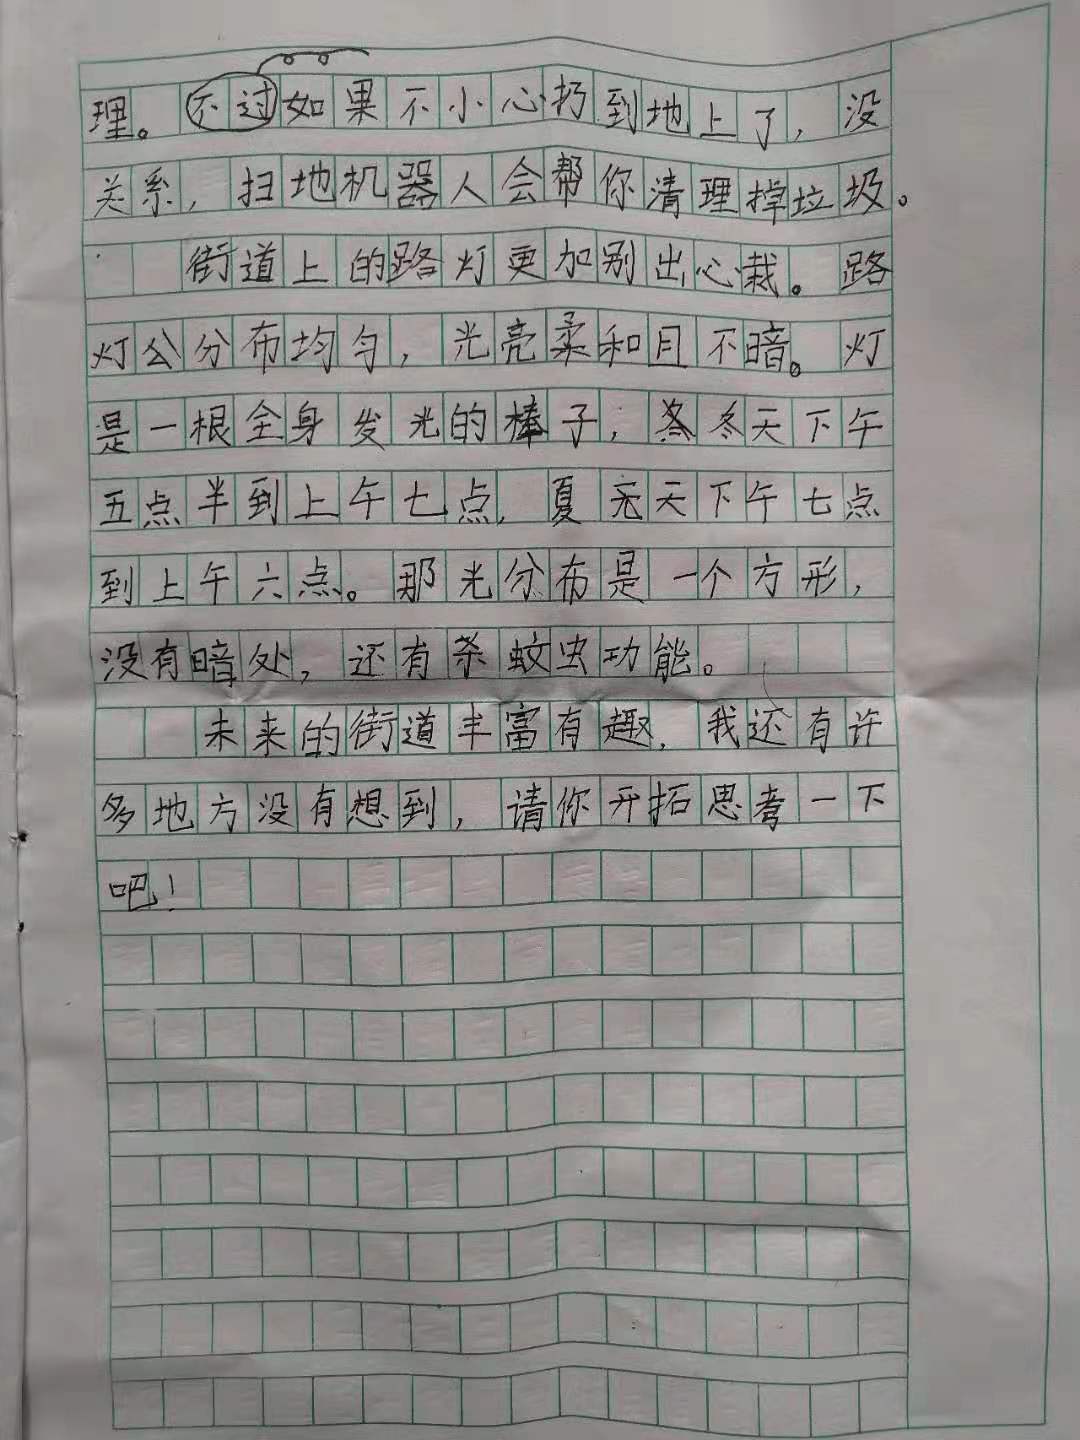 理。不过如果不小心扔到地上了，没
关系，扫地机器人会帮你清理掉垃圾。
街道上的路灯更加别出心裁。路
灯公分布均匀，光亮柔和且不暗。灯
是一根全身发光的棒子，冬天下午
五点半到上午七点，夏天下午七点
到上午六点。那光分布是一个方形，
没有暗处，还有杀蚊虫功能。
未来的街道丰富有趣，我还有许
多地方没有想到，请你开拓思考一下
吧！